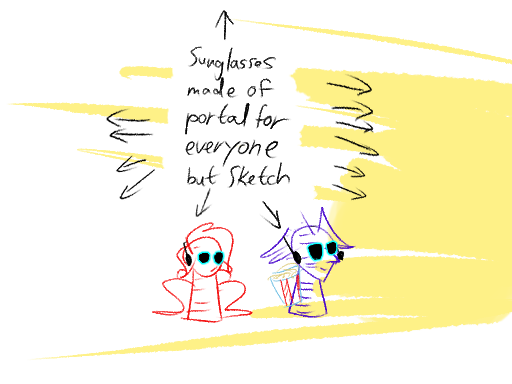 Sunglasses
made of
portal for
everyone
but Sketch